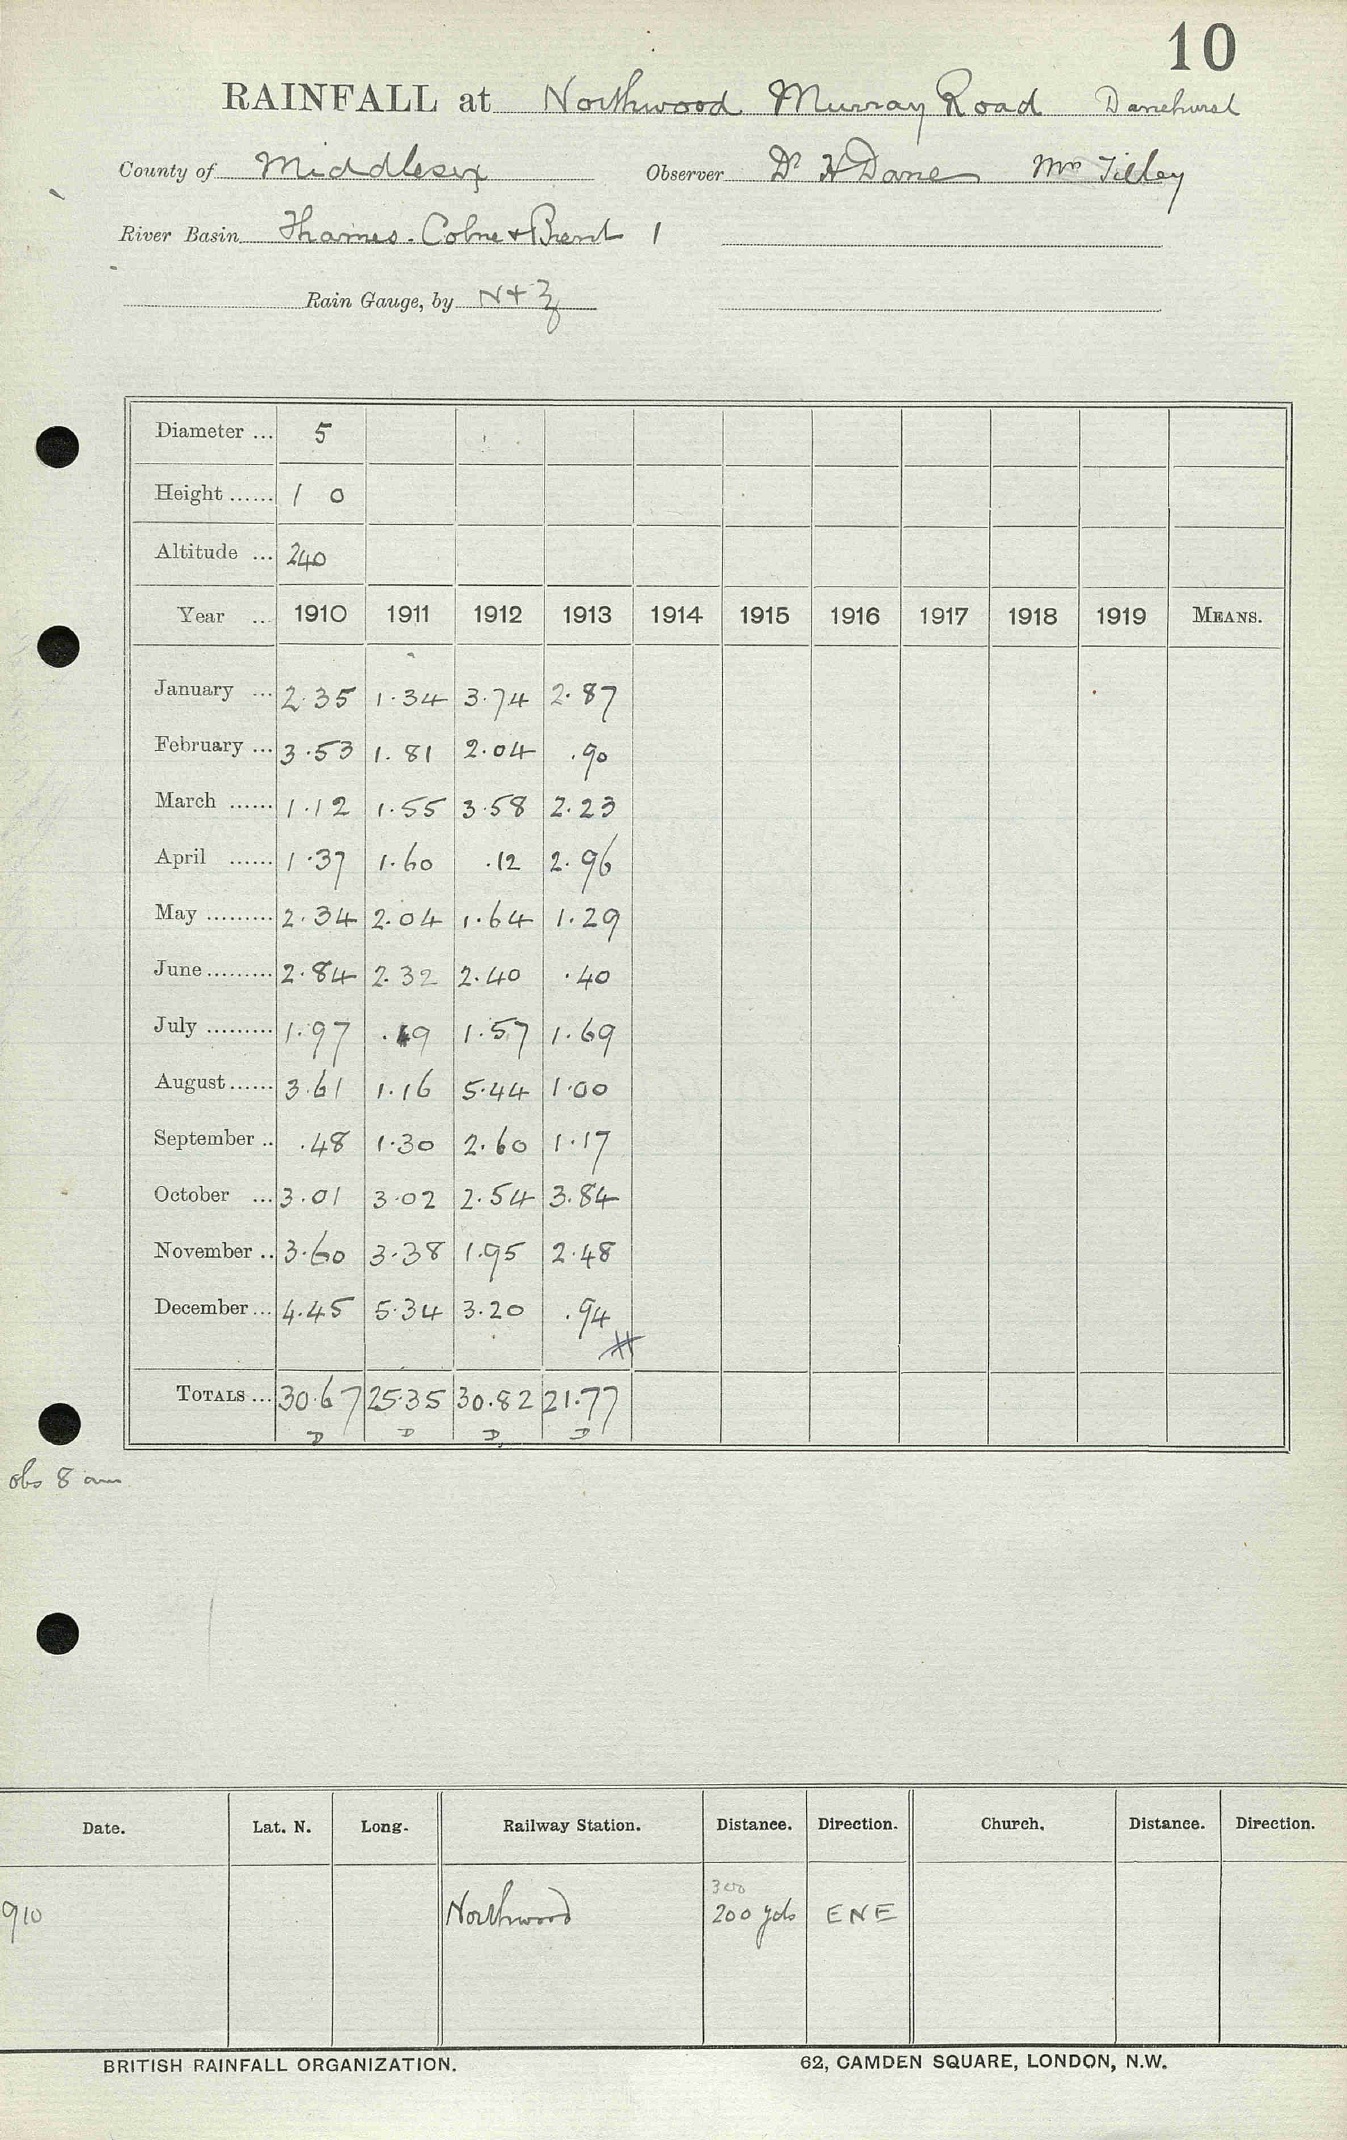 10
RAINFALL at Northwood Murray Road Danehurst
County of Middlesex Observer Dr H Dane Mrs Tilley
River Basin Thames. Colne + Brent 1
Rain Gauge, by N + Z
Diameter ... 5
Height ...... 1 0
Altitude ... 240
Year ... 1910 1911 1912 1913 1914 1915 1916 1917 1918 1919 MEANS.
January ... 2.35 1.34 3.74 2.87
February ... 3.53 1.81 2.04 .90
March ...... 1.12 1.55 3.58 2.23
April ...... 1.37 1.60 .12 2.96
May ......... 2.34 2.04 1.64 1.29
June ......... 2.84 2.32 2.40 .40
July ......... 1.97 .49 1.57 1.69
August ...... 3.61 1.16 5.44 1.00
September .. .48 1.30 2.60 1.17
October ... 3.01 3.02 2.54 3.84
November .. 3.60 3.38 1.95 2.48
December ... 4.45 5.34 3.20 .94
TOTALS ... 30.67 25.35 30.82 21.77
D D D D
obs 8 am
Date. Lat. N. Long. Railway Station. Distance. Direction. Church. Distance. Direction.
300
910 Northwood 200 yds ENE
BRITISH RAINFALL ORGANIZATION. 62, CAMDEN SQUARE, LONDON, N.W.